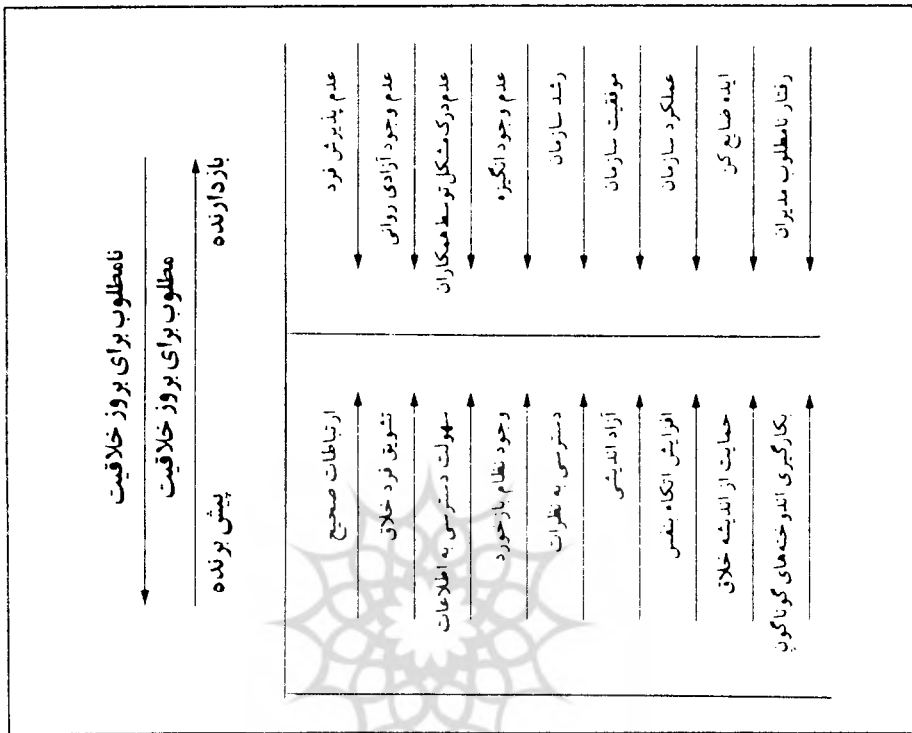 نامطلوب برای بروز خلاقیت
مطلوب برای بروز خلاقیت
بازدارنده
پیش برنده
عدم پذیرش فرد
عدم وجود آزادی روانی
عدم درک مشکل توسط همکاران
عدم وجود انگیزه
رشد سازمان
موفقیت سازمان
عملکرد سازمان
ایده ضایع کن
رفتار نامطلوب مدیران
ارتباطات صحیح
تشویق فرد خلاق
سهولت دسترسی به اطلاعات
وجود نظام بازخورد
دسترسی به نظرات
آزاد اندیشی
افزایش اتکاء بنفس
حمایت از اندیشه خلاق
بکارگیری اندوخته‌های گوناگون